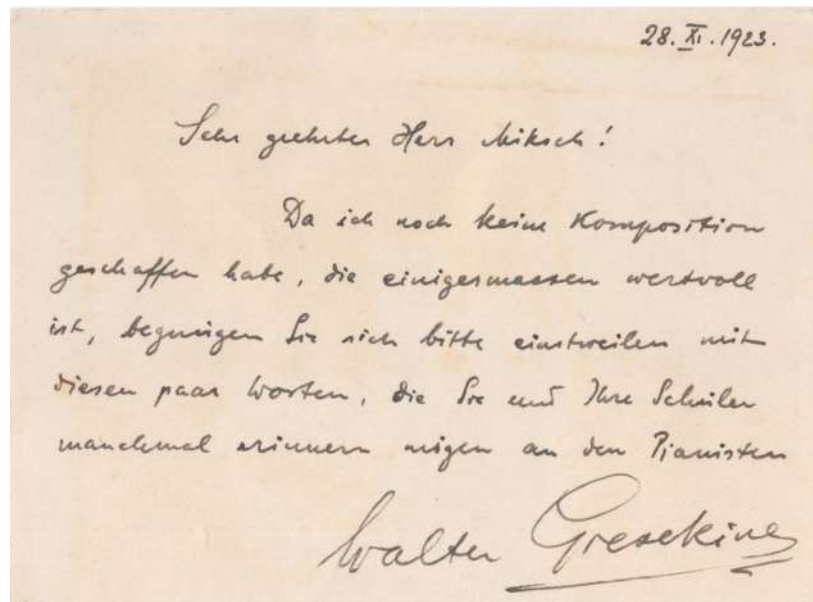 28. XI. 1923.
Sehr geehrter Herr Miksch!
Da ich noch keine Komposition
geschaffen habe, die einigermassen wertvoll
ist, begnügen Sie sich bitte einstweilen mit
diesen paar Worten, die Sie und Ihre Schüler
manchmal erinnern mögen an den Pianisten
Walter Gieseking